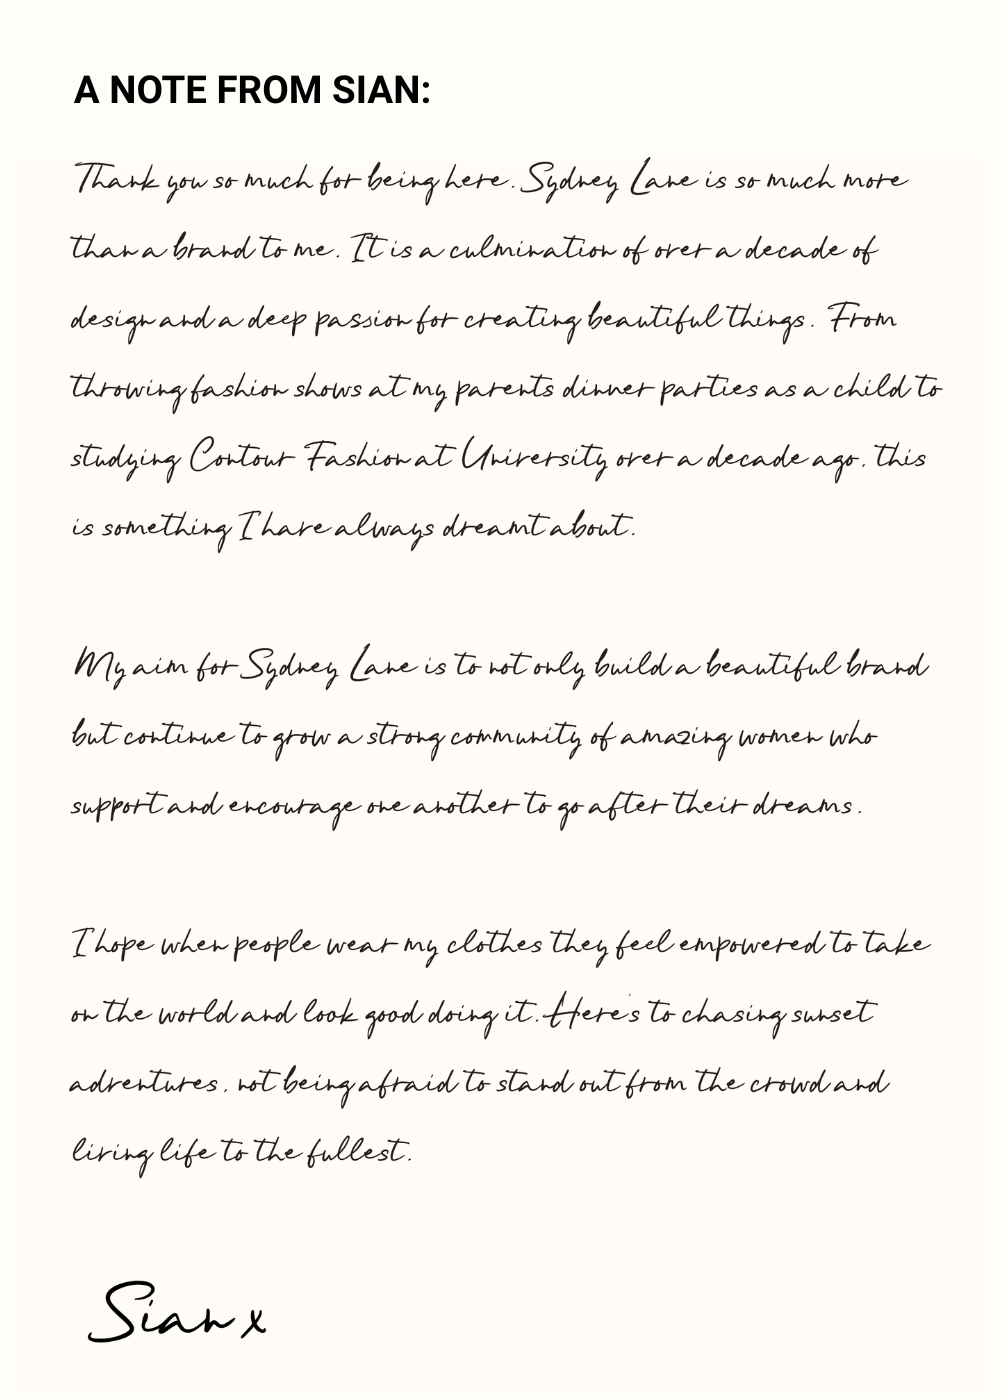 A NOTE FROM SIAN:
Thank you so much for being here. Sydney Lane is so much more
than a brand to me. It is a culmination of over a decade of
design and a deep passion for creating beautiful things. From
throwing fashion shows at my parents dinner parties as a child to
studying Contour Fashion at University over a decade ago, this
is something I have always dreamt about.
My aim for Sydney Lane is to not only build a beautiful brand
but continue to grow a strong community of amazing women who
support and encourage one another to go after their dreams.
I hope when people wear my clothes they feel empowered to take
on the world and look good doing it. Here's to chasing sunset
adventures, not being afraid to stand out from the crowd and
living life to the fullest.
Sian x